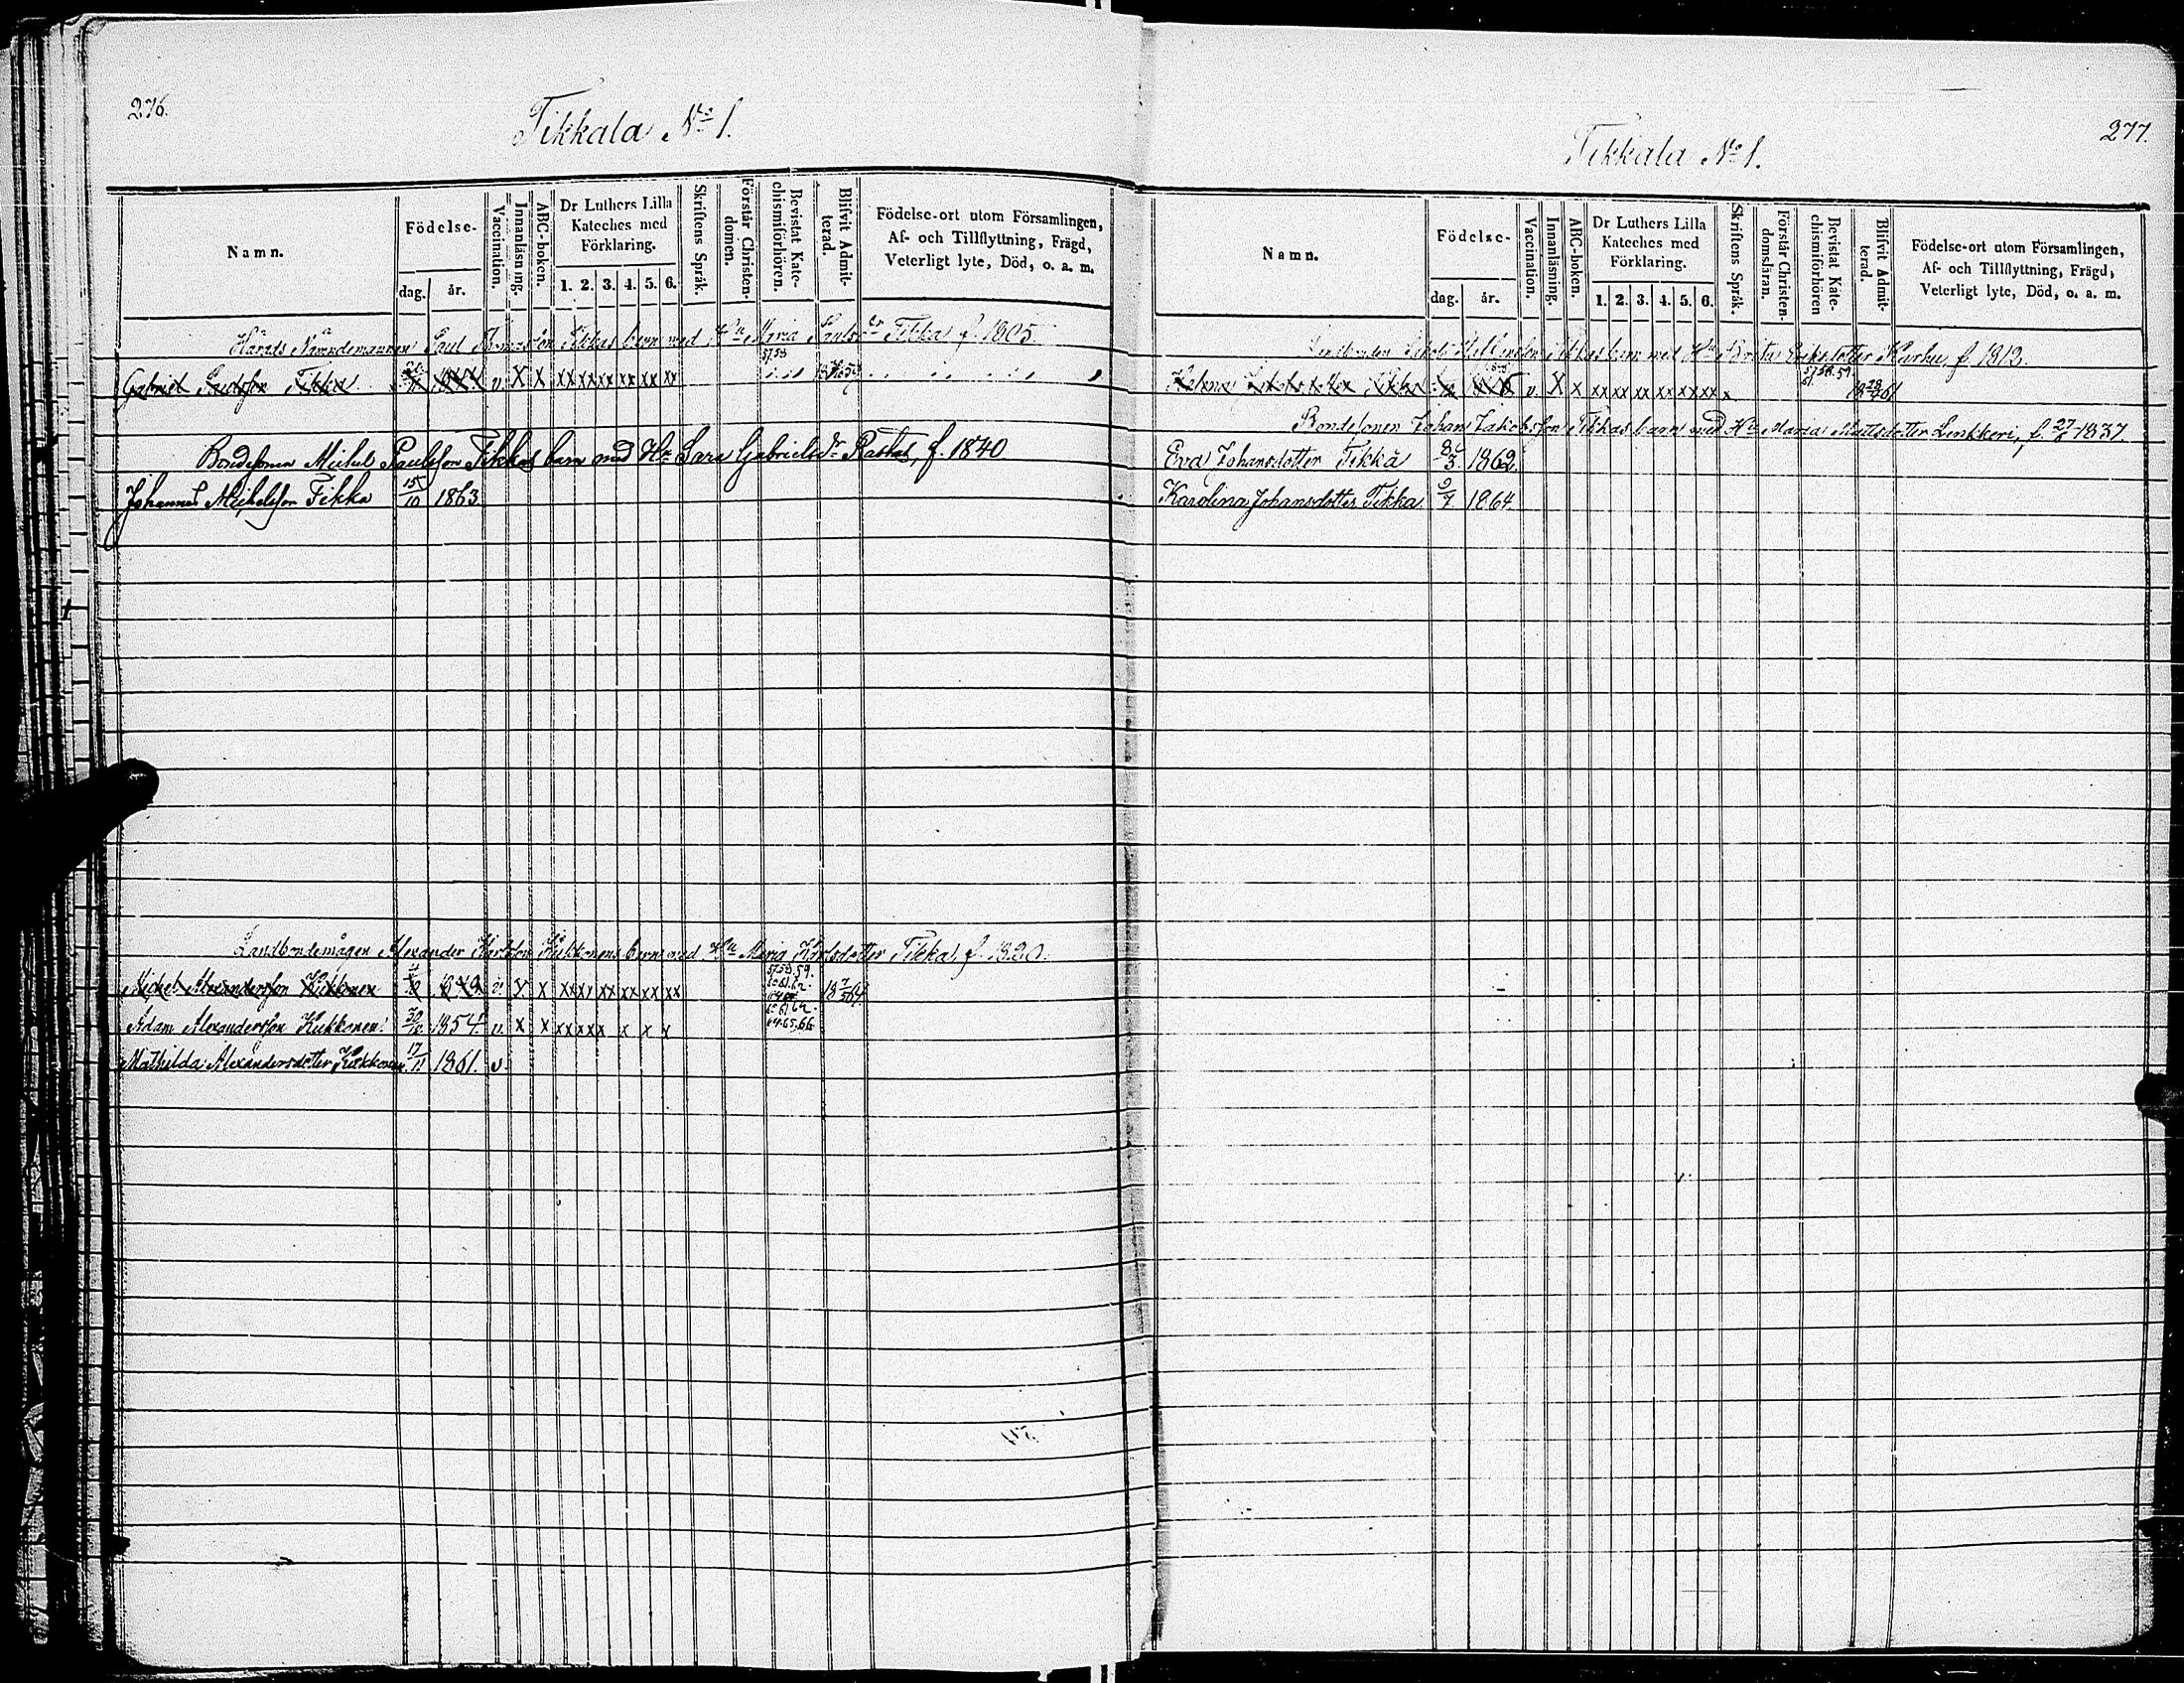 276.
Tikkala No 1.
Namn.
Födelse-
dag.
år.
Vaccination.
Innanläsning.
ABC-boken.
Dr Luthers Lilla
Kateches med
Förklaring.
1. 2. 3. 4. 5. 6.
Skriftens Språk.
Förstår Christen-
domen.
Bevistat Kate-
chismiförhören.
Blifvit Admit-
terad.
Födelse-ort utom Församlingen,
Af- och Tillflyttning, Frägd,
Veterligt lyte, Död, o. a. m.
Härads Nämndemannen Paul Tikkas barn med Hu Maria Paulsdr Tikka f. 1805.
Gabriel Paulsson Tikka v. X X xx xx xx xx xx xx 57.58
Bondesonen Michel Paulsson Tikkas barn med Hu Sara Gabrielsdr Rastas, f. 1840
Johannes Michelsson Tikka 15/10 1863.
Landbondemågen Alexander Karlsson Kukkonens barn med Hu Maria Karlsdotter Tikka, f. 1820.
Michel Alexandersson Kukkonen 1849 v. X X xx xx xx xx xx xx 57.58.59.
Adam Alexandersson Kukkonen 1854. v. x x xx xx x x x x 64.65.66
Mathilda Alexandersdotter Kukkonen 17/11 1861. v.
277.
Tikkala No 1.
Namn.
Födelse-
dag.
år.
Vaccination.
Innanläsning.
ABC-boken.
Dr Luthers Lilla
Kateches med
Förklaring.
1. 2. 3. 4. 5. 6.
Skriftens Språk.
Förstår Christen-
domsläran.
Bevistat Kate-
chismiförhören
Blifvit Admit-
terad.
Födelse-ort utom Församlingen,
Af- och Tillflyttning, Frägd,
Veterligt lyte, Död, o. a. m.
Landbonden Tikkas barn med Hu Brita Eriksdotter Karhu, f. 1813.
Tikka v. X x xx xx xx xx xx xx x 57.58.59. 61.
Bondesonen Johan Jakobsson Tikkas barn med Hu Maria Mattsdotter Linkkeri, f. 1837
Eva Johansdotter Tikka 1862.
Karolina Johansdotter Tikka 9/7 1864.